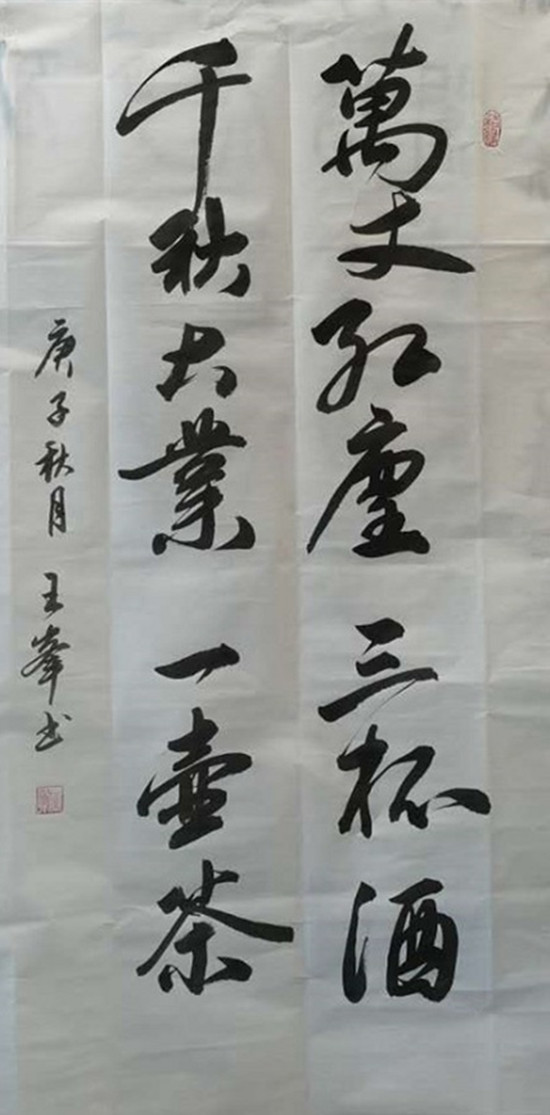 萬丈紅塵三杯酒
千秋大業一壺茶
庚子秋月 王峯书